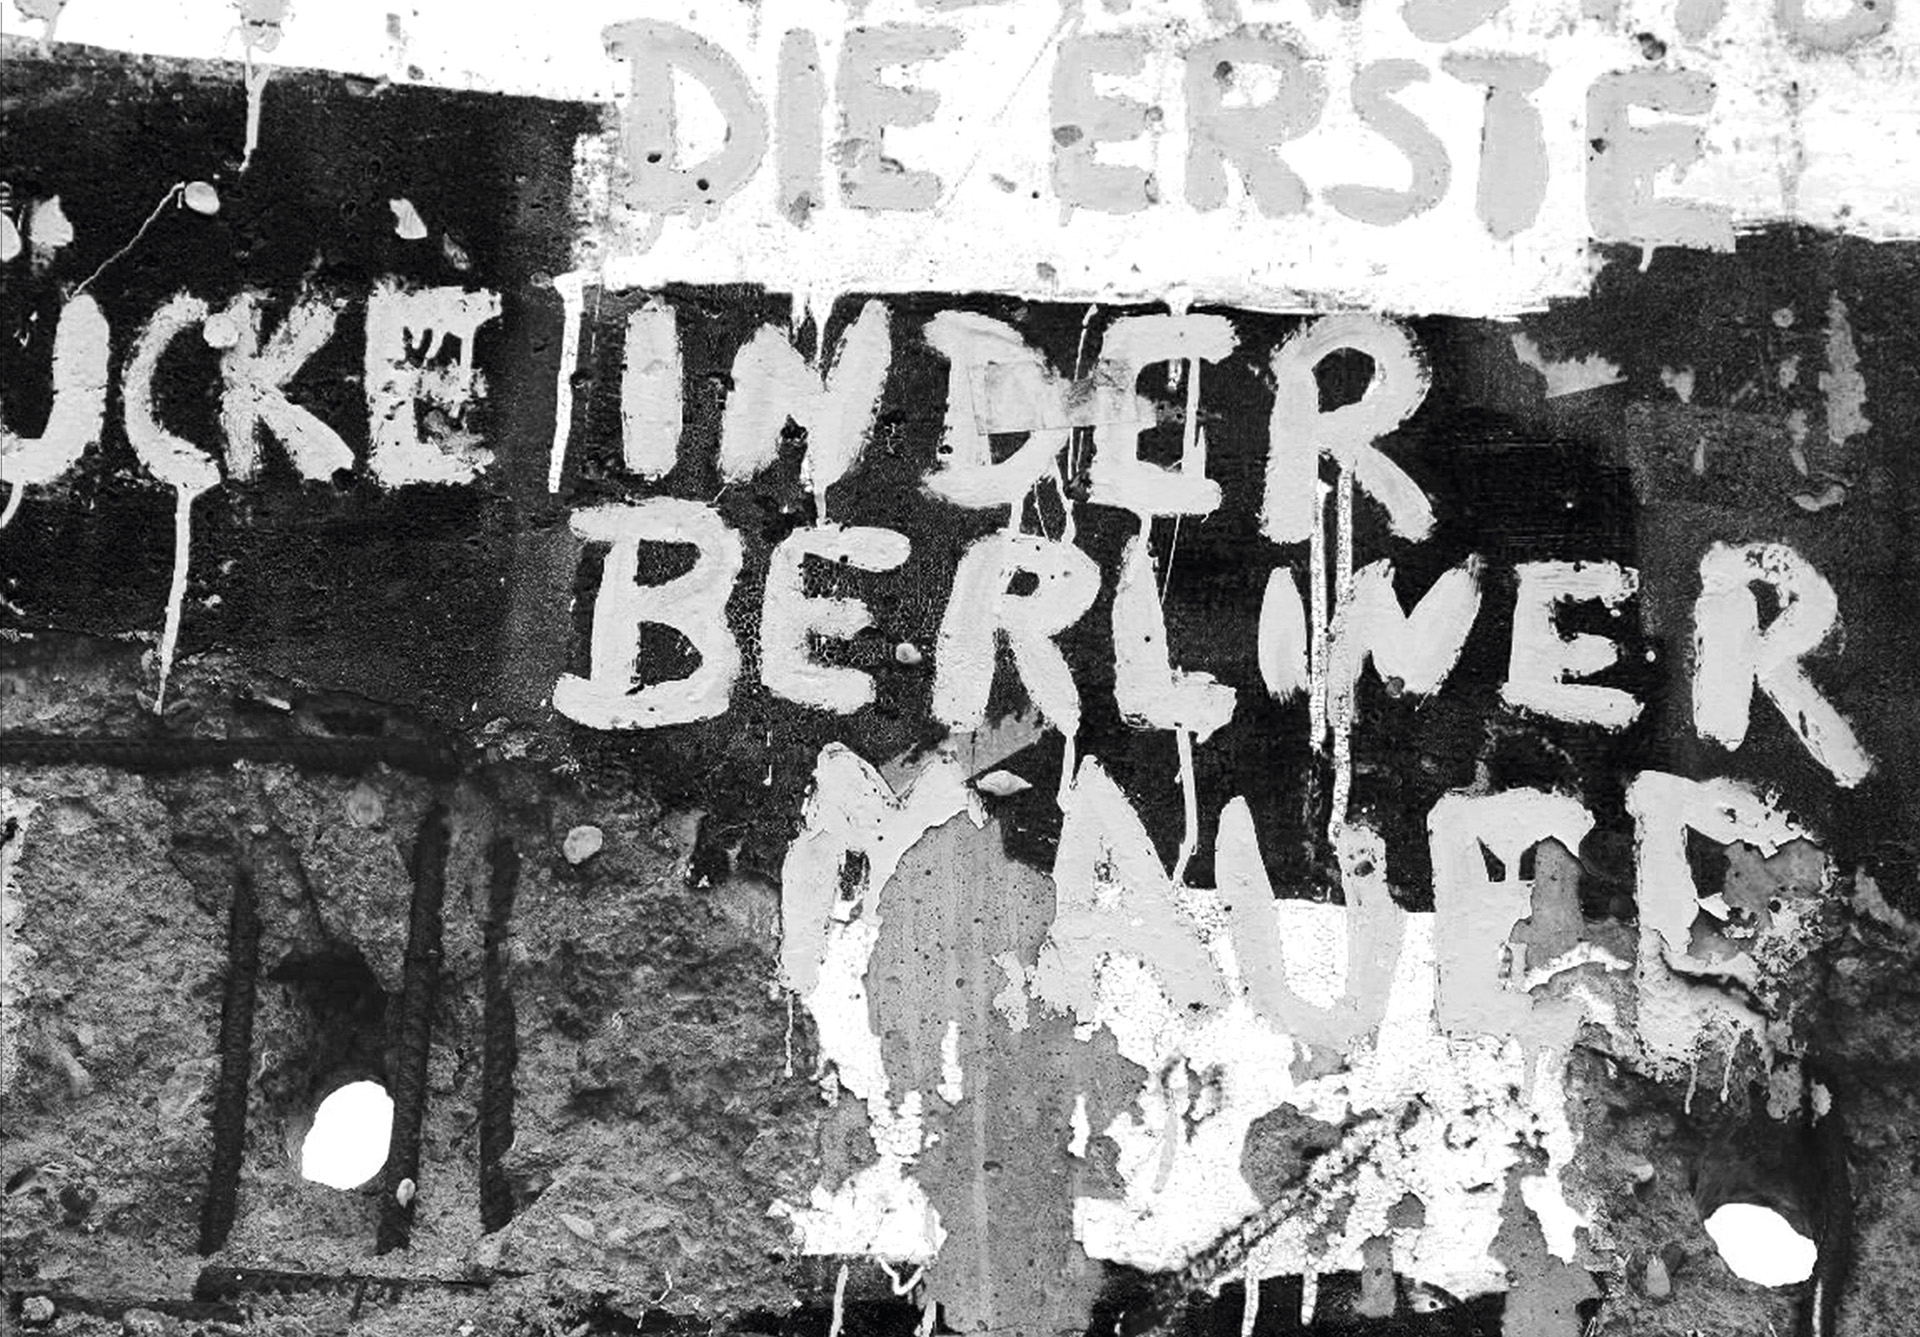 DIE ERSTE
UCKE IN DER
BERLINER
MAUER